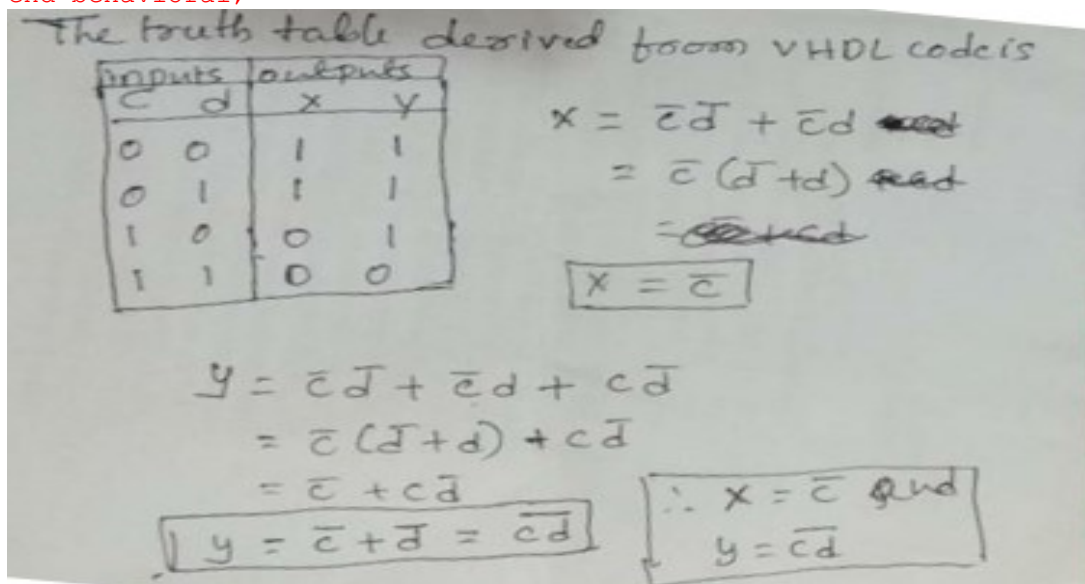 end behavioral;
The truth table derived from VHDL code is
inputs outputs
c d x y
0 0 1 1
0 1 1 1
1 0 0 1
1 1 0 0
x = c̅d̅ + c̅d
= c̅(d̅+d)
x = c̅
y = c̅d̅ + c̅d + cd̅
= c̅(d̅+d) + cd̅
= c̅ + cd̅
y = c̅ + d̅ = c̅d̅
∴ x = c̅ and
y = c̅d̅